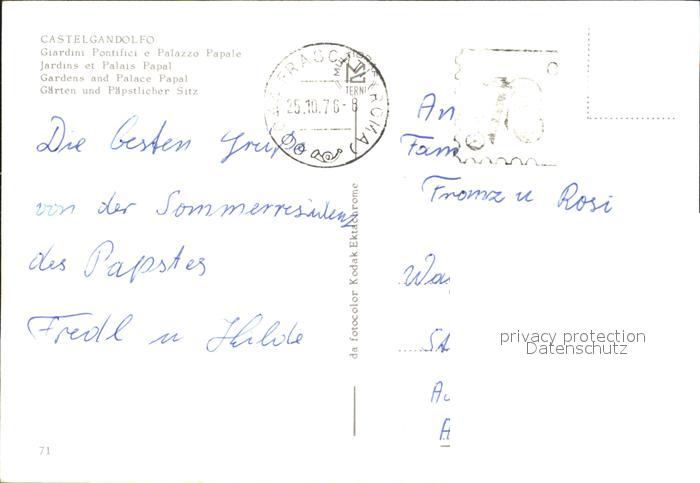 CASTELGANDOLFO
Giardini Pontifici e Palazzo Papale
Jardins et Palais Papal
Gardens and Palace Papal
Gärten und Päpstlicher Sitz
FRASCATI (ROMA)
25.10.76-8
Die besten Grüße
von der Sommerresidenz
des Papstes
Fredl u Hilde
71
da fotocolor Kodak Ektachrome
An
Fam
Franz u Rosi
Wa
St
A
privacy protection
Datenschutz